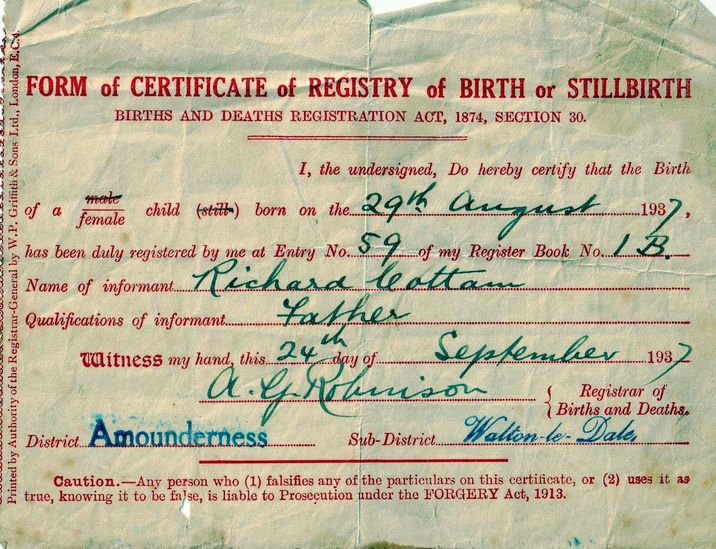 FORM of CERTIFICATE of REGISTRY of BIRTH or STILLBIRTH
BIRTHS AND DEATHS REGISTRATION ACT, 1874, SECTION 30.
I, the undersigned, Do hereby certify that the Birth
of a male female child (still-) born on the 29th August 1937,
has been duly registered by me at Entry No. 59 of my Register Book No. 1 B.
Name of informant Richard Cottam
Qualifications of informant Father
Witness my hand, this 24th day of September 1937
A. G. Robinson { Registrar of
{ Births and Deaths.
District Amounderness Sub-District Walton-le-Dale,
Caution.—Any person who (1) falsifies any of the particulars on this certificate, or (2) uses it as
true, knowing it to be false, is liable to Prosecution under the FORGERY Act, 1913.
Printed by Authority of the Registrar-General by W. P. Griffith & Sons Ltd., London, E.C.4.